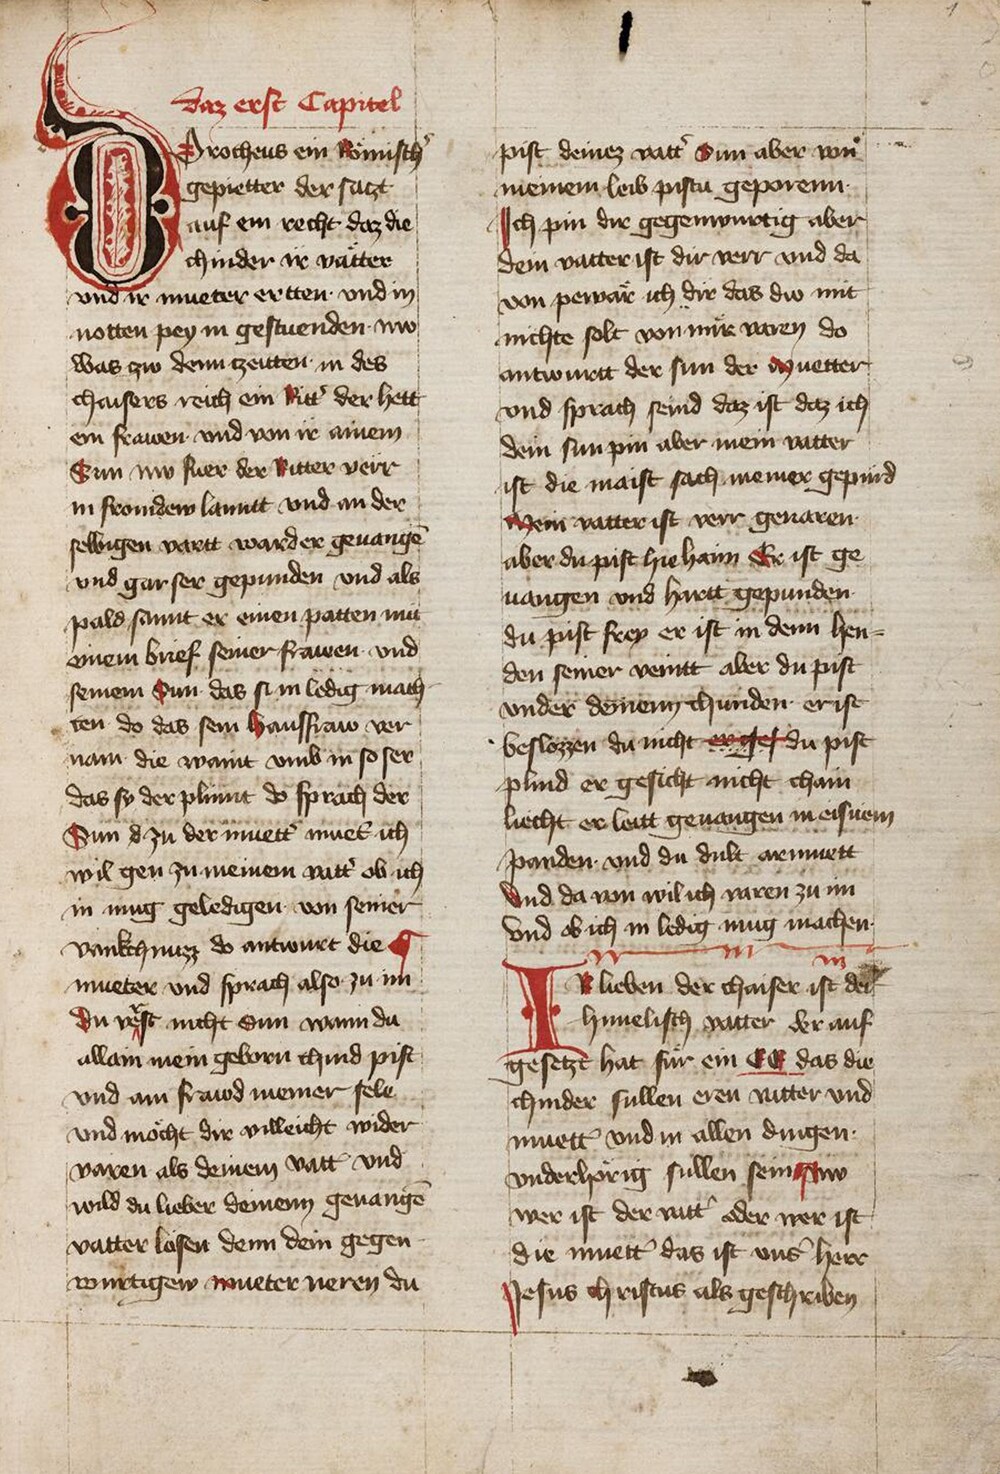 daz erst Capitel
Dyocheus ein Römisch'
gepietter der satzt
auf ein recht daz die
chinder ir vätter
vnd ir mueter ertten vnd in
notten pey in gestuenden nw
was zw denn tzeitten in des
chaisers reich ein Ritt' der hett
ein frawen vnd von ir ainem
Sun nw fuer der Ritter verr
in fromdew lanntt vnd an der
selbigen vartt ward er geuangē
vnd gar ser gepunden vnd als
pald sannt er einen patten mit
einem brief seiner frawen vnd
seinem Sun das si in ledig mach
ten do das sein haussfraw ver
nam die waint vmb in so ser
das sy der plinnt do sprach der
Sun zu der muett' muet' ich
wil gen zu meinem vatt' ob ich
in mug geledigen von seiner
vankchnuzz do antwurt die
mueter vnd sprach also zu im
du verst nicht Sun wann du
allain mein geborn chind pist
vnd ain frawd meiner sele
vnd möcht dir villeicht wider
varen als deinem vatt' vnd
wild du lieber deinenn geuangē
vatter lösen denn dein gegen
wurtigew mueter neren du
pist deinez vatt' Sun aber von
meinem leib pistu geporenn
Ich pin dir gegenwurtig aber
dein vatter ist dir verr vnd da
von pewär ich dir das dw mit
nichte solt von mir varen do
antwurtt der sun der Muetter
vnd sprach seind daz ist daz ich
dein sun pin aber mein vatter
ist die maist sach meiner gepurd
Mein vatter ist verr geuaren
aber du pist hie haim Er ist ge
uangen vnd hartt gepunden
du pist frey er ist in denn hen=
den seiner veintt aber du pist
vnder deinenn chunden er ist
beslozzen du nicht er ges du pist
plind er gesicht nicht chain
liecht er leitt geuangen in eisnem
panden vnd du dult armuett
Vnd da von wil ich varen zu im
vnd ob ich in ledig mug machen
IR lieben der chaiser ist der
himelisch vatter der auf
gesetzt hat für ein EE das die
chinder sullen eren vatter vnd
muett' vnd in allen dingen
vnderhörig sullen sein Nw
wer ist der vatt' oder wer ist
die muett' das ist vns' herr
Jesus christus als geschriben